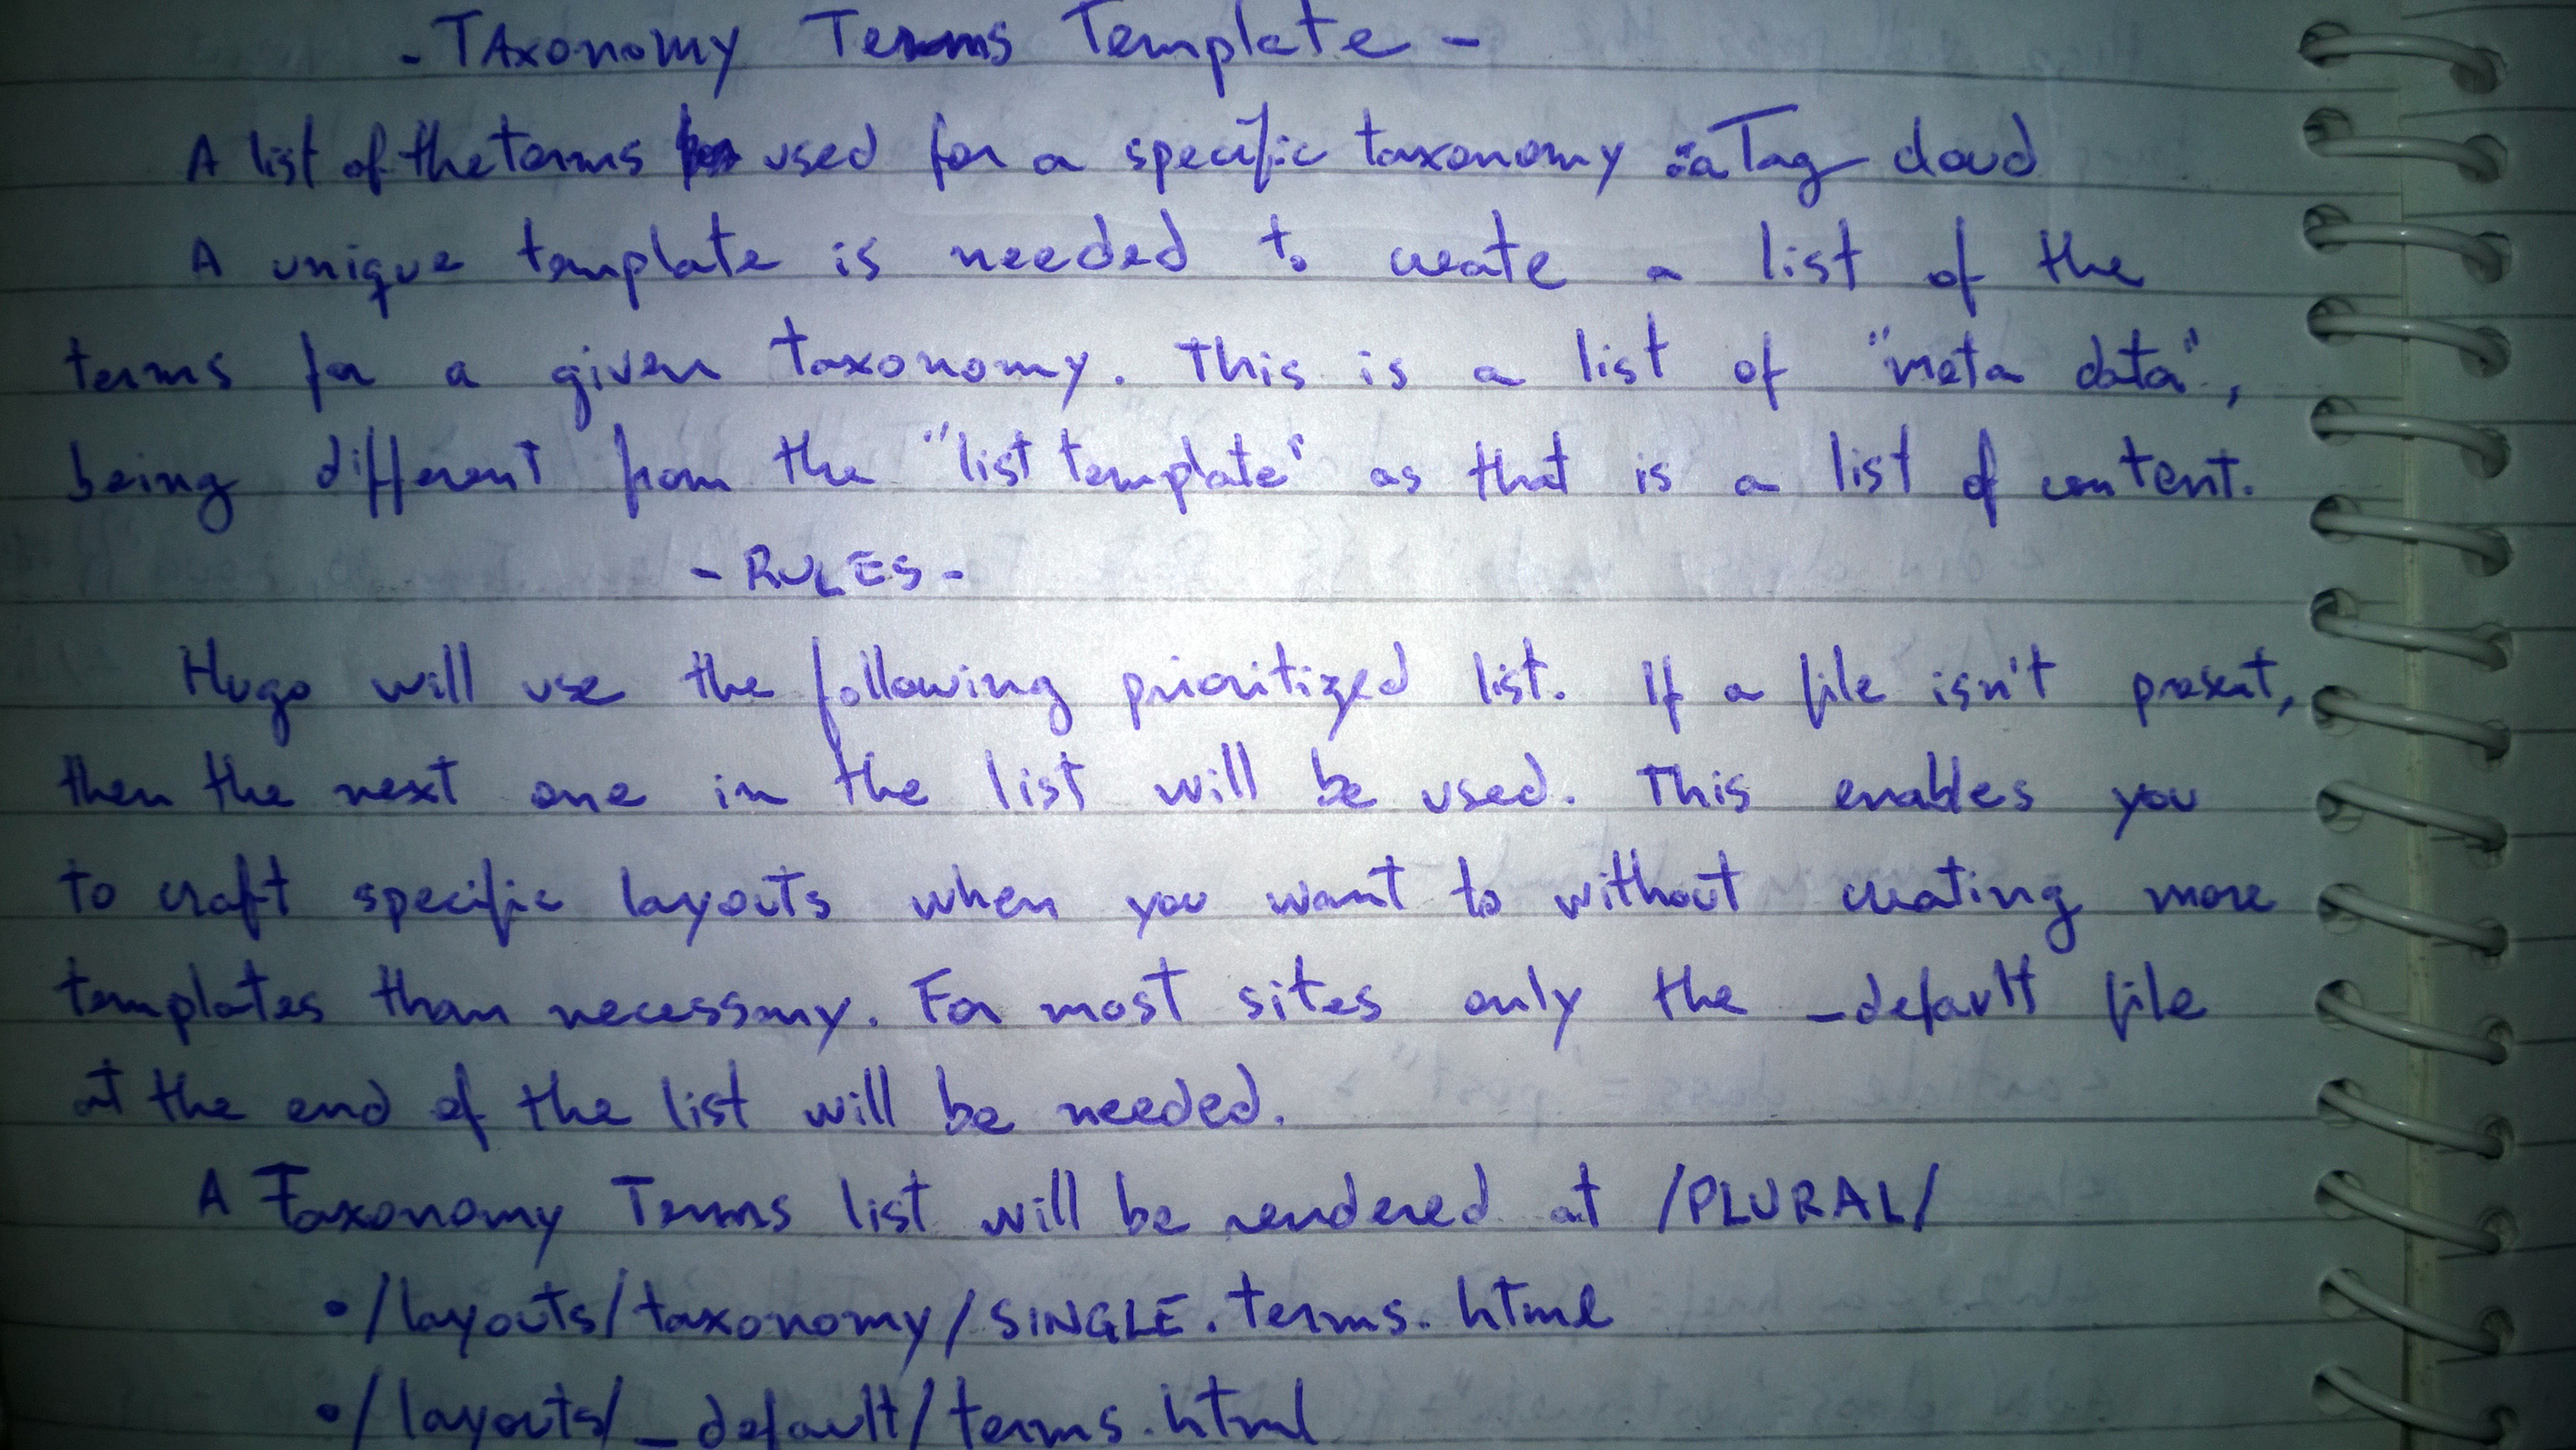 - TAxonomy Terms Template -
A list of the terms used for a specific taxonomy :a Tag cloud
A unique template is needed to create a list of the
terms for a given taxonomy. This is a list of "meta data",
being different from the "list template" as that is a list of content.
- RULES -
Hugo will use the following prioritized list. If a file isn't present,
then the next one in the list will be used. This enables you
to craft specific layouts when you want to without creating more
templates than necessary. For most sites only the _default file
at the end of the list will be needed.
A Taxonomy Terms list will be rendered at /PLURAL/
• /layouts/taxonomy/SINGLE.terms.html
• /layouts/_default/terms.html